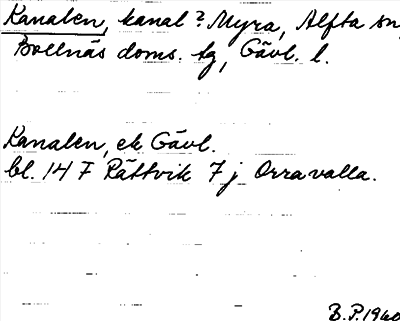 Kanalen, kanal? Myra, Alfta sn,
Bollnäs doms. tg, Gävl. l.
Kanalen, ek Gävl.
bl. 14 F Rättvik 7 j Orravalla.
B.P. 1960